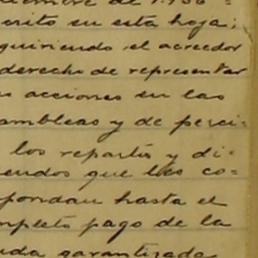 ciembre de 1.936-
crito en esta hoja;
quiriendo el acreedor
derecho de representar
s acciones en las
ambleas y de perci-
los repartos y di-
endos que les co-
pondan hasta el
mpleto pago de la
uda garantizada